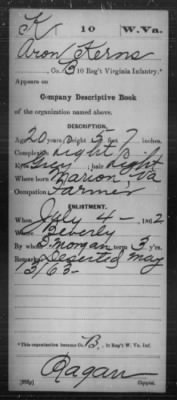 K 10 W.Va.
Aron Kerns
, Co. B, 10 Reg't Virginia Infantry.*
Appears on
Company Descriptive Book
of the organization named above.
DESCRIPTION.
Age 20 years; height 5 feet 7 inches.
Complexion Light
Eyes Gray; hair Light
Where born Marion, Va
Occupation Farmer
ENLISTMENT.
When July 4 —, 1862
Where Beverly
By whom D. Morgan; term 3 y'rs.
Remarks: Deserted May
2/63 -
*This organization became Co. B, 10 Reg't W. Va. Inf.
Ragan
Copyist.